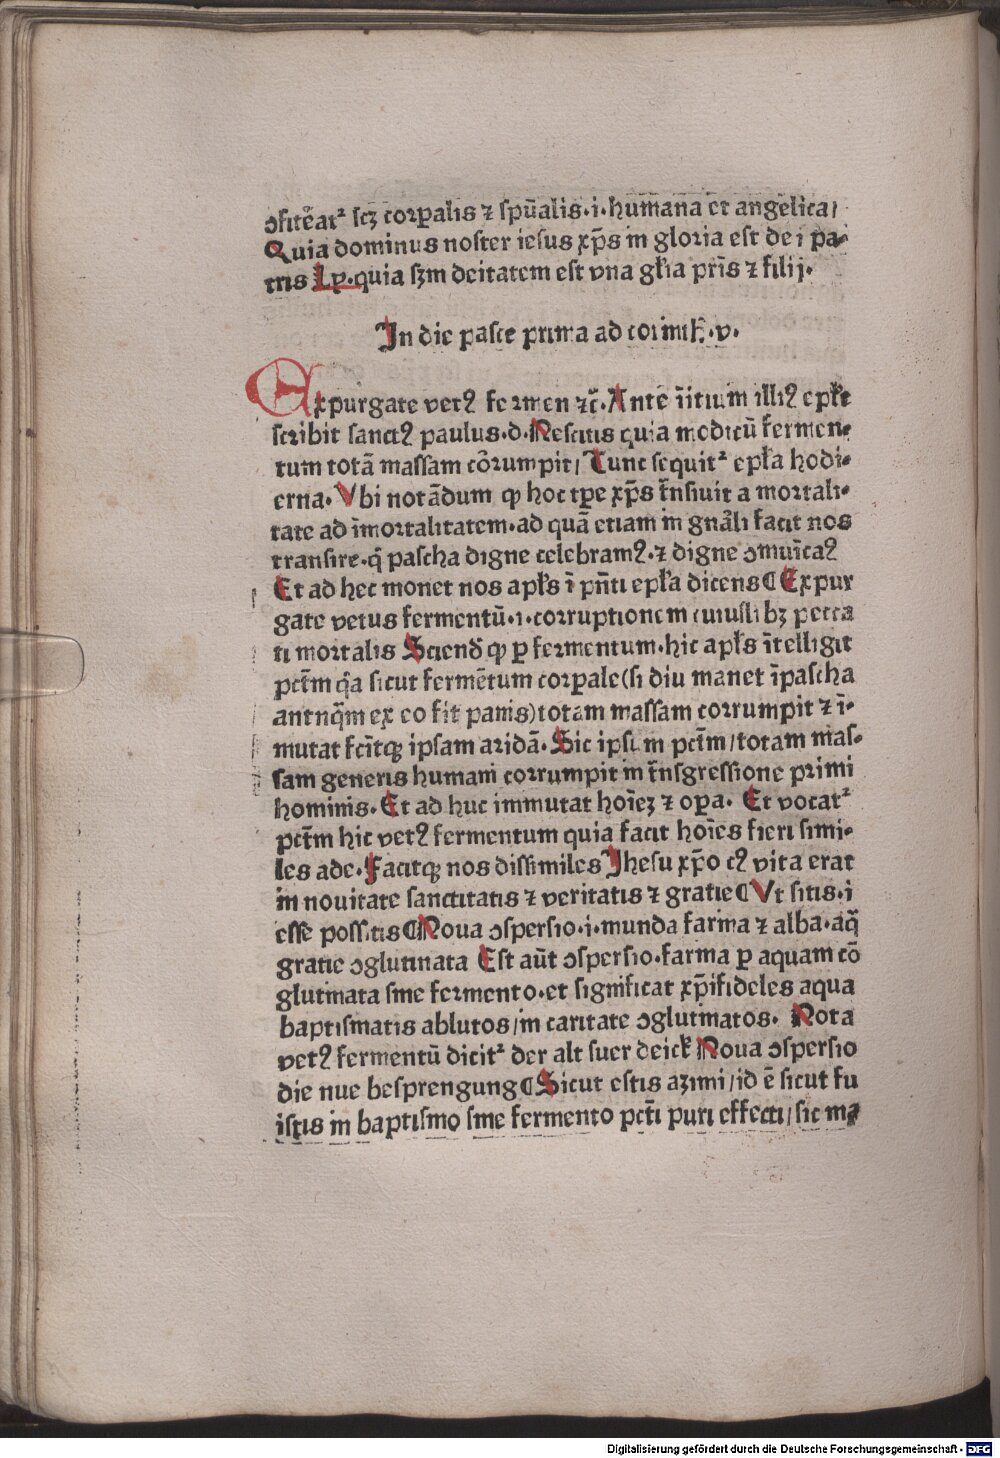 ↄfiteat᷑ scʒ corꝑalis ⁊ spūalis·i·humana et angelica/
Quia dominus noster iesus xp̄s in gloria est dei pa⸗
tris Lp̄·quia sʒm deitatem est vna gl̄ia pr̄is ⁊ filij·
In die pasce prima ad corinth̄·v·
Expurgate vetꝰ fermen ⁊c̄·Ante īitium illiꝰ epl̄e
scribit sanctꝰ paulus·d·Nescitis quia modicū fermen⸗
tum totā massam cōrumpit/ Tunc sequit᷑ epl̄a hodi⸗
erna·Vbi notādum ꝙ hoc tp̄e xp̄s t̄nsiuit a mortali⸗
tate ad īmortalitatem·ad quā etiam in gnāli facit nos
transire·q̄ pascha digne celebramꝰ·⁊ digne ↄmuīcaꝰ
Et ad hec monet nos apl̄s ī pn̄ti epl̄a dicens ¶ Expur
gate vetus fermentū·i·corruptionem cuiuslibʒ pecca
ti mortalis Sciend̄ ꝙ ꝑ fermentum·hic apl̄s ītelligit
pctm̄ q̄a sicut fermētum corpale(si diu manet īpascha
antnq̄m ex eo fit panis)totam massam corrumpit ⁊ ī⸗
mutat fcītqʒ ipsam aridā·Sic ipsum pctm̄/totam mas⸗
sam generis humani corrumpit in t̄nsgressione primi
hominis·Et ad huc immutat hoīeʒ ⁊ oꝑa· Et vocat᷑
pctm̄ hic vetꝰ fermentum quia facit hoīes fieri simi⸗
les ade·Facitqʒ nos dissimiles Jhesu xp̄o cꝰ vita erat
in nouitate sanctitatis ⁊ veritatis ⁊ gratie ¶ Vt sitis·i
esse possitis ¶ Noua ↄspersio·i·munda farina ⁊ alba·aq̄
gratie ↄglutinata Est aūt ↄspersio·farina ꝑ aquam cō
glutinata sine fermento·et significat xp̄ifideles aqua
baptismatis ablutos/in caritate ↄglutinatos· Nota
vetꝰ fermentū dicit᷑ der alt suer deick̄ Noua ↄspersio
die nue besprengung ¶ Sicut estis azimi/id ē sicut fu
istis in baptismo sine fermento pcti̅ puri effecti/sic ma
Digitalisierung gefördert durch die Deutsche Forschungsgemeinschaft - DFG